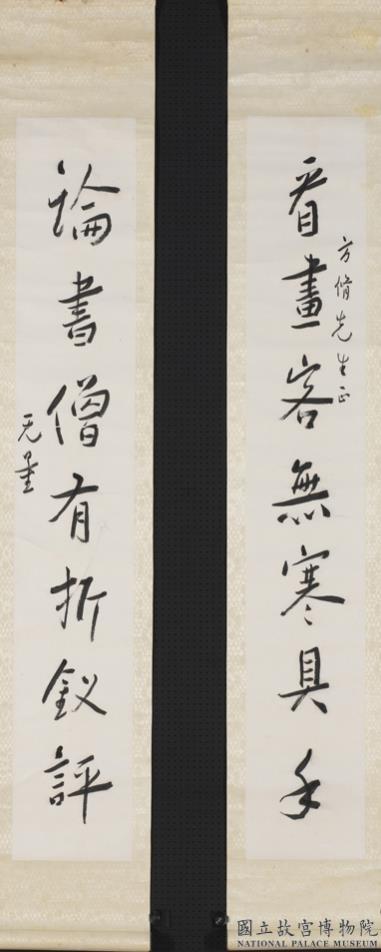 看畫客無寒具手
方脩先生正
論書僧有折釵評
无量
國立故宮博物院
NATIONAL PALACE MUSEUM